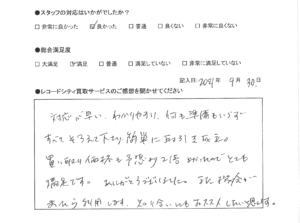 ●スタッフの対応はいかがでしたか？
□非常に良かった ☑良かった □普通 □良くない □非常に良くない
●総合満足度
□大満足 ☑満足 □普通 □満足していない □非常に満足していない
記入日:2021年 9月 30日
●レコードシティ買取サービスのご感想を聞かせてください
対応が早い、わかりやすい、何も準備もいらず
すべてそろえて下さり簡単に取引き成立。
買い取り価格も予想の2倍 とても
満足です。ありがとうございました。また機会が
あれば利用します。知り合いにもおススメしたい思います。